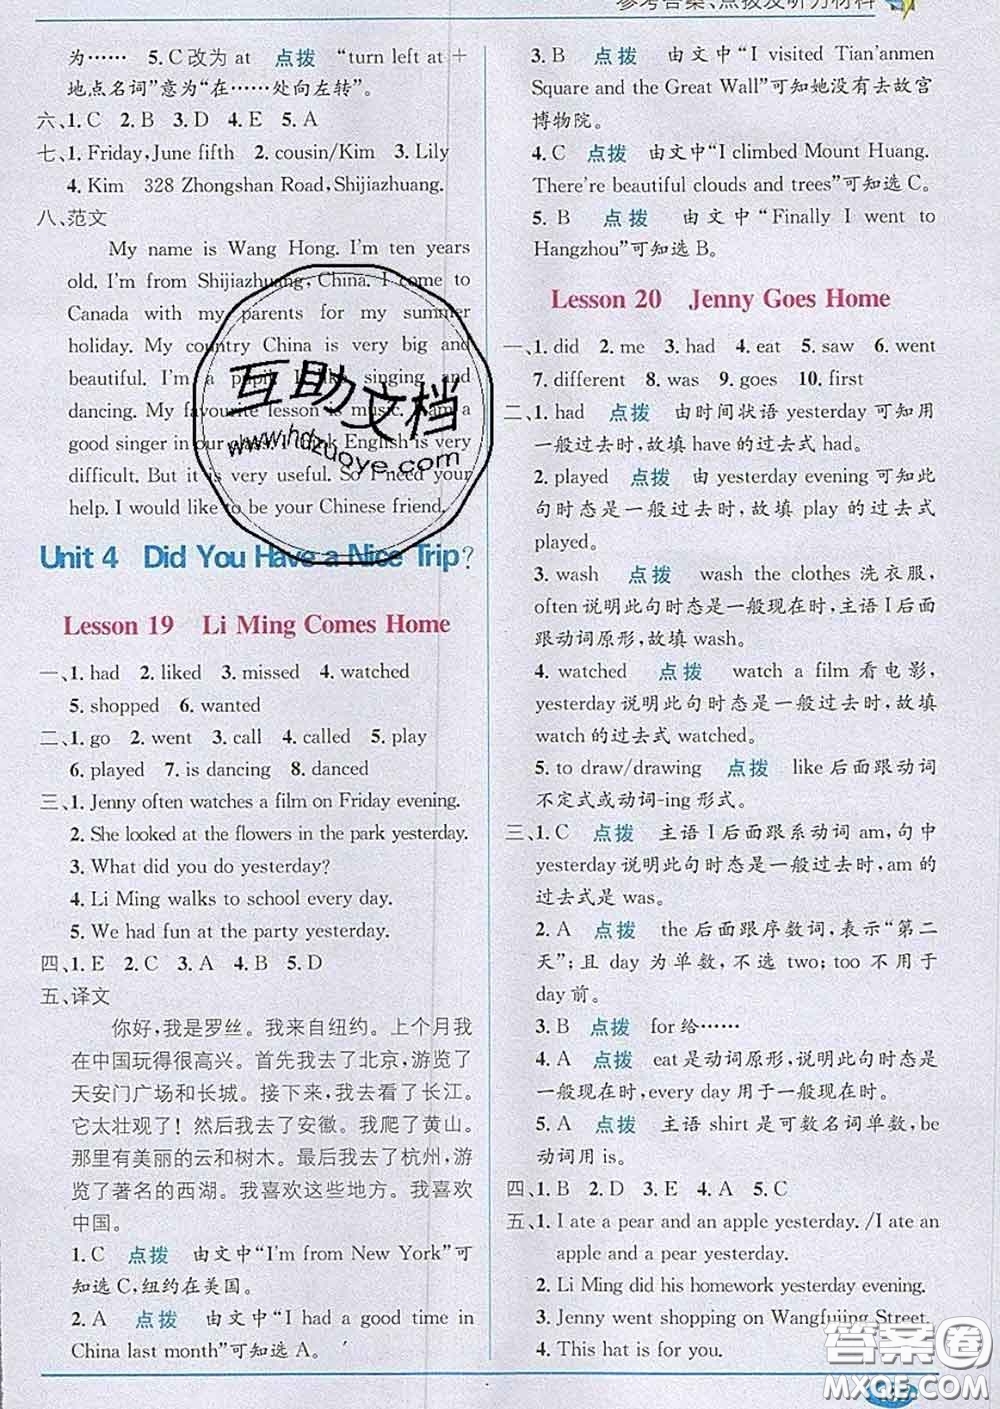 参考答案、点拨及听力材料
为…… 5. C 改为 at 点拨 “turn left at +
地点名词”意为“在……处向左转”。
六、1. C 2. B 3. D 4. E 5. A
七、1. Friday, June fifth 2. cousin/Kim 3. Lily
4. Kim 328 Zhongshan Road, Shijiazhuang.
八、范文
My name is Wang Hong. I'm ten years
old. I'm from Shijiazhuang, China. I come to
Canada with my parents for my summer
holiday. My country China is very big and
beautiful. I'm a pupil. I like singing and
dancing. My favourite lesson is music. I am a
good singer in our class. I think English is very
difficult. But it is very useful. So I need your
help. I would like to be your Chinese friend.
Unit 4 Did You Have a Nice Trip?
Lesson 19 Li Ming Comes Home
一、1. had 2. liked 3. missed 4. watched
5. shopped 6. wanted
二、1. go 2. went 3. call 4. called 5. play
6. played 7. is dancing 8. danced
三、1. Jenny often watches a film on Friday evening.
2. She looked at the flowers in the park yesterday.
3. What did you do yesterday?
4. Li Ming walks to school every day.
5. We had fun at the party yesterday.
四、1. E 2. C 3. A 4. B 5. D
五、译文
你好,我是罗丝。我来自纽约。上个月我
在中国玩得很高兴。首先我去了北京,游览了
天安门广场和长城。接下来,我去看了长江。
它太壮观了！然后我去了安徽。我爬了黄山。
那里有美丽的云和树木。最后我去了杭州,游
览了著名的西湖。我喜欢这些地方。我喜欢
中国。
1. C 点拨 由文中“I'm from New York”可
知选 C,纽约在美国。
2. A 点拨 由文中“I had a good time in
China last month”可知选 A。
3. B 点拨 由文中“I visited Tian'anmen
Square and the Great Wall”可知她没有去故宫
博物院。
4. C 点拨 由文中“I climbed Mount Huang.
There're beautiful clouds and trees”可知选 C。
5. B 点拨 由文中“Finally I went to
Hangzhou”可知选 B。
Lesson 20 Jenny Goes Home
一、1. did 2. me 3. had 4. eat 5. saw 6. went
7. different 8. was 9. goes 10. first
二、1. had 点拨 由时间状语 yesterday 可知用
一般过去时,故填 have 的过去式 had。
2. played 点拨 由 yesterday evening 可知此
句时态是一般过去时,故填 play 的过去式
played。
3. wash 点拨 wash the clothes 洗衣服,
often 说明此句时态是一般现在时,主语 I 后面
跟动词原形,故填 wash。
4. watched 点拨 watch a film 看电影,
yesterday 说明此句时态是一般过去时,故填
watch 的过去式 watched。
5. to draw/drawing 点拨 like 后面跟动词
不定式或动词-ing 形式。
三、1. C 点拨 主语 I 后面跟系动词 am,句中
yesterday 说明此句时态是一般过去时,am 的
过去式是 was。
2. A 点拨 the 后面跟序数词,表示“第二
天”;且 day 为单数,不选 two;too 不用于
day 前。
3. B 点拨 for 给……
4. A 点拨 eat 是动词原形,说明此句时态是
一般现在时,every day 用于一般现在时。
5. A 点拨 主语 shirt 是可数名词单数,be
动词用 is。
四、1. B 2. D 3. E 4. A 5. C
五、1. I ate a pear and an apple yesterday. /I ate an
apple and a pear yesterday.
2. Li Ming did his homework yesterday evening.
3. Jenny went shopping on Wangfujing Street.
4. This hat is for you.
互助文档
www.hdzuoye.com
答案圈
MXQE.COM